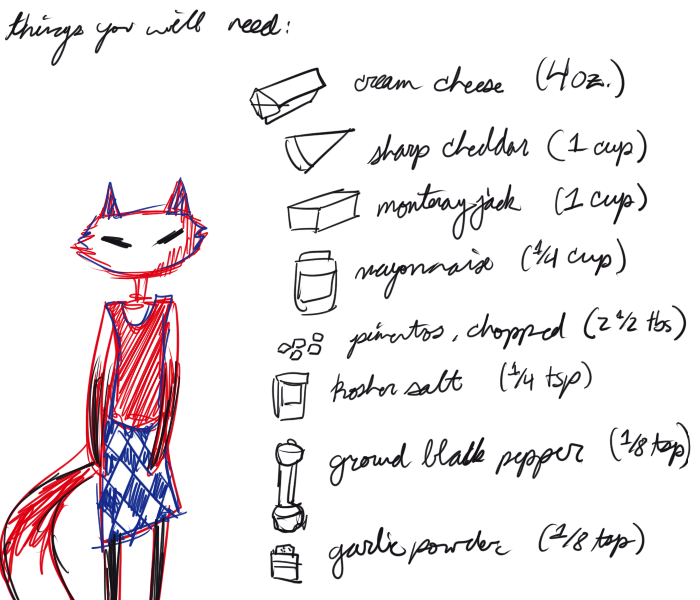 things you will need:
cream cheese (4oz.)
sharp cheddar (1 cup)
monteray jack (1 cup)
mayonnaise (1/4 cup)
pimentos, chopped (2 1/2 tbs)
kosher salt (1/4 tsp)
ground black pepper (1/8 tsp)
garlic powder (1/8 tsp)